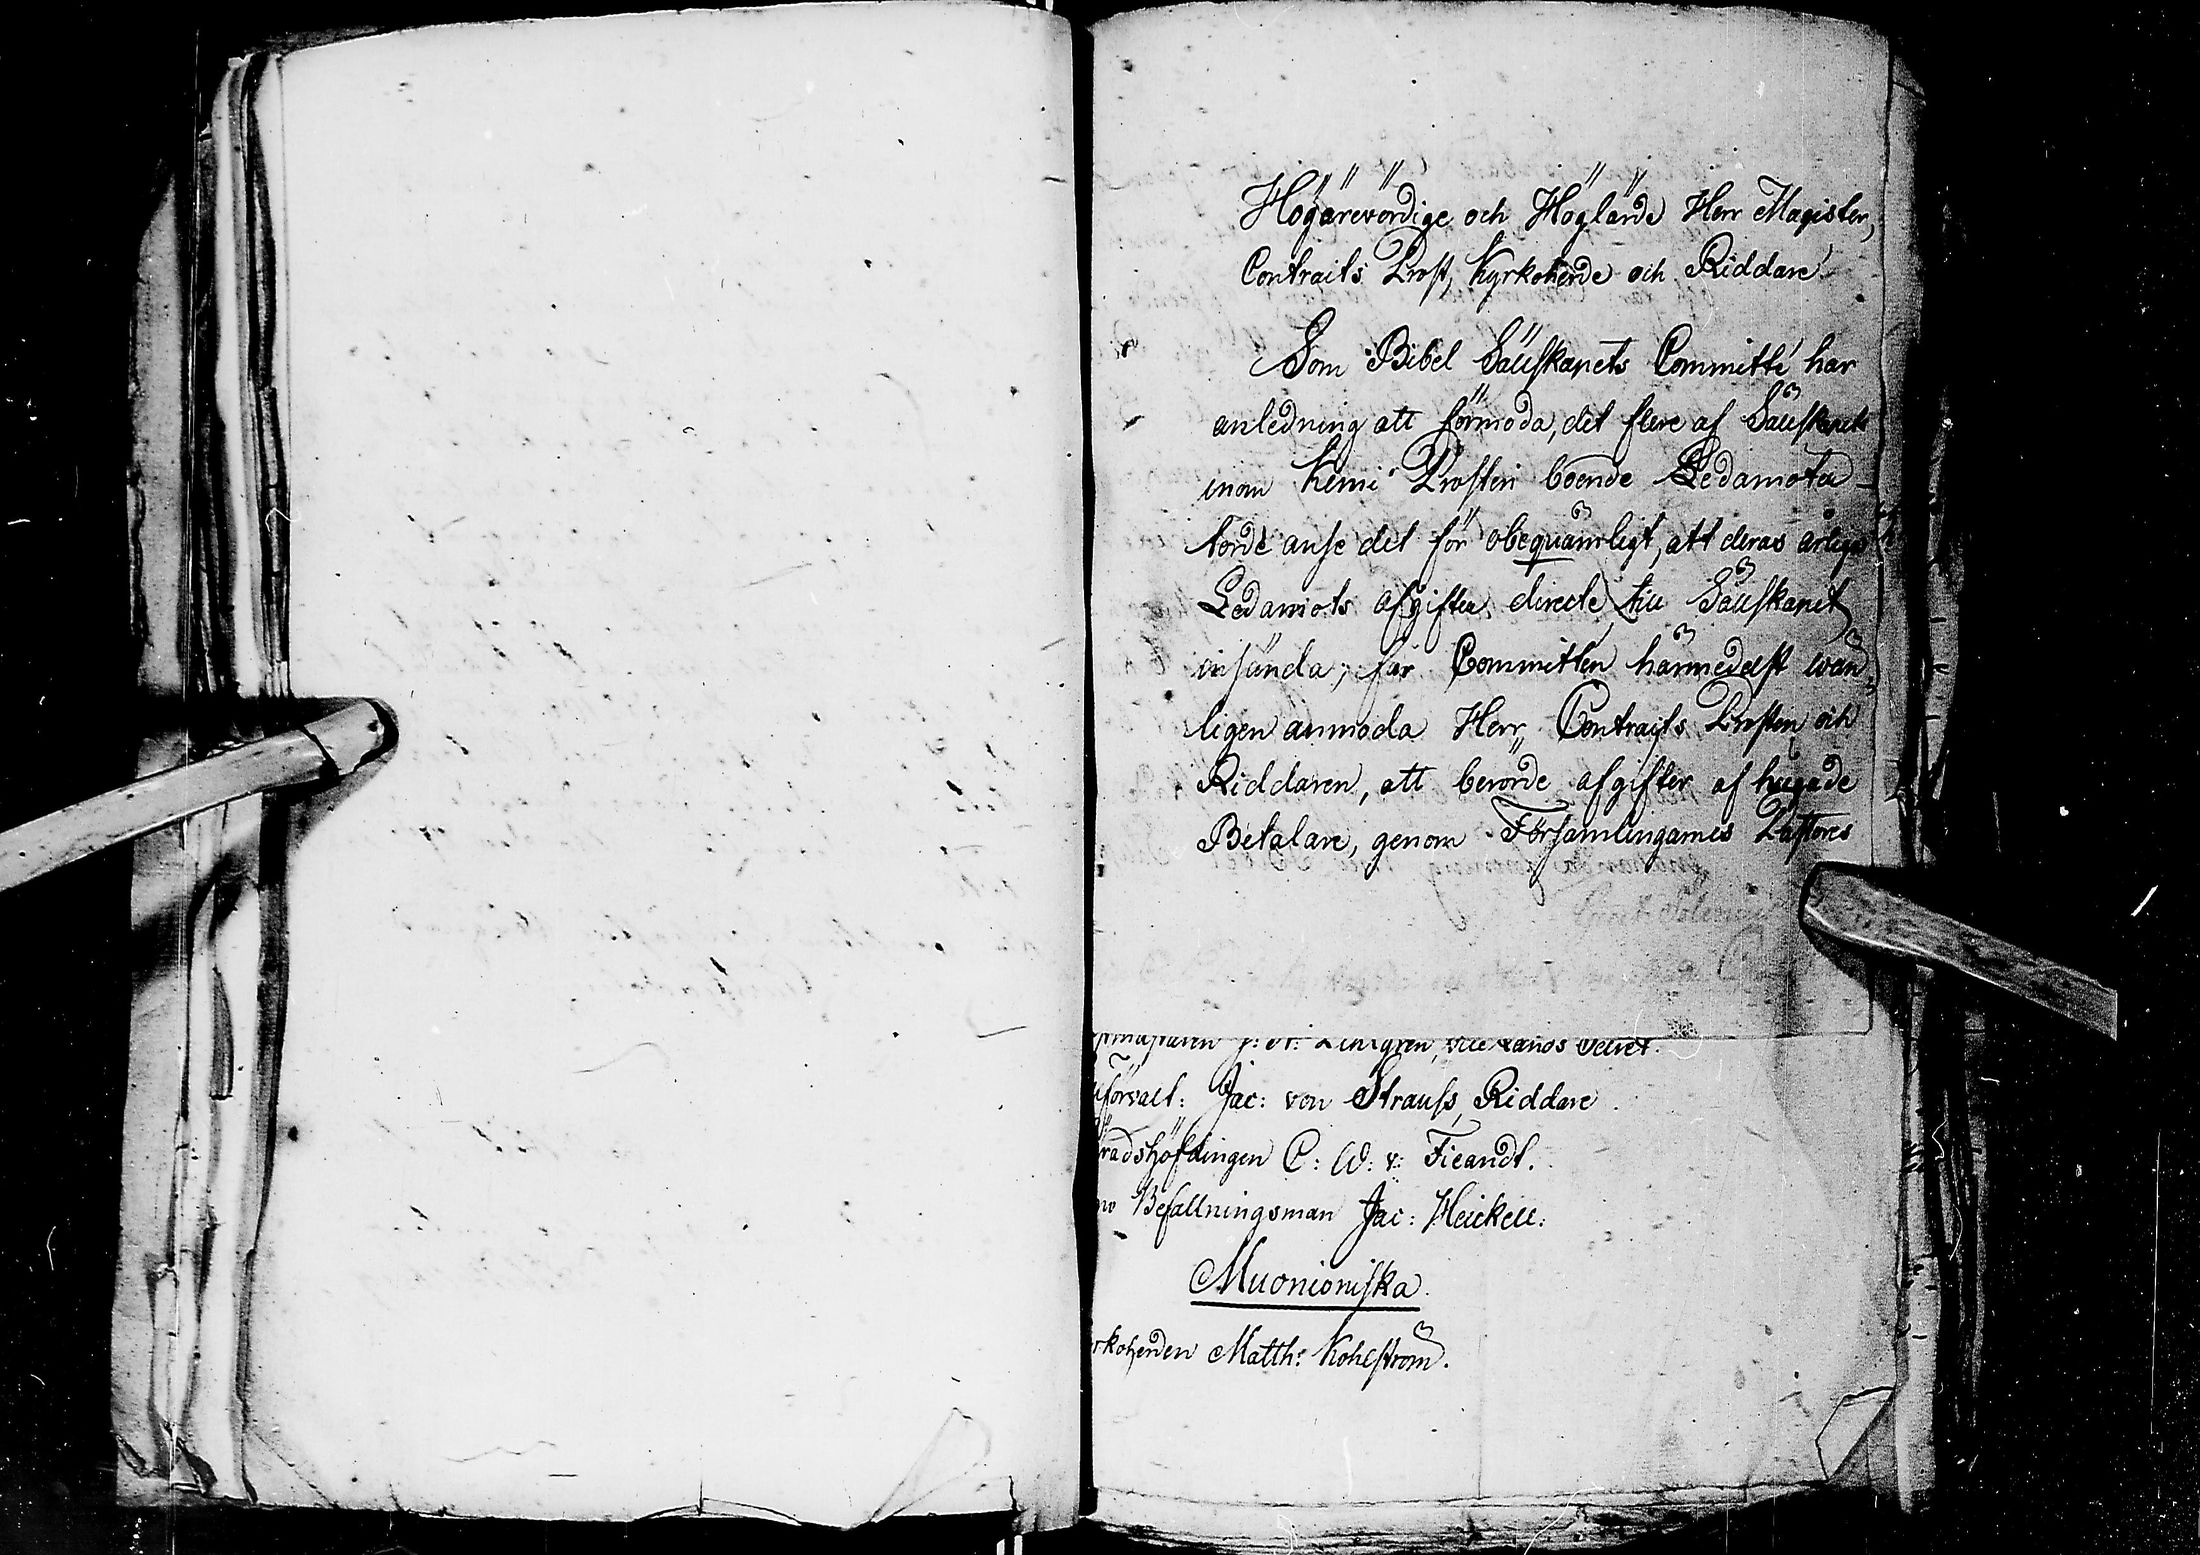 Högärevördige och Höglärde Herr Magister,
Contracts Prost, Kyrkoherde och Riddare!
Som Bibel Sällskapets Committé har
anledning att förmoda, det flere af Sällskapets
inom Kemi Prosteri boende Ledamöter
torde anse det för obequämligt, att deras årliga
Ledamots afgifter directe till Sällskapet
insända; får Committén härmedelst wän-
ligen anmoda Herr Contracts Prosten och
Riddaren, att berörde afgifter af hugade
Betalare, genom Församlingarnes Pastores
Lindgren, vice Lands Secret.
förvalt: Jac: von Strauss, Riddare.
radshöfdingen C: W: v: Fieandt.
Befallningsman Jac: Heickell:
Muonioniska.
rkoherden Matth: Kohlström.